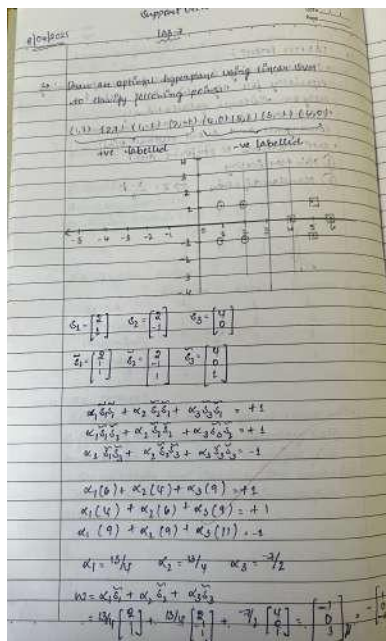 Support Vec
8/04/2025
LAB-7
Draw an optimal hyperplane using linear SVM
to classify following points:
(1,1) (2,1) (1,-1) (2,-1) (4,0) (5,1) (5,-1) (6,0)
+ve labelled -ve labelled
4
3
2
1
-5 -4 -3 -2 -1 0 1 2 3 4 5 6
-1
-2
-3
-4
s₁ = [2 1] s₂ = [2 -1] s₃ = [4 0]
s̃₁ = [2 1 1] s̃₂ = [2 -1 1] s̃₃ = [4 0 1]
α₁s̃₁s̃₁ + α₂s̃₂s̃₁ + α₃s̃₃s̃₁ = +1
α₁s̃₁s̃₂ + α₂s̃₂s̃₂ + α₃s̃₃s̃₂ = +1
α₁s̃₁s̃₃ + α₂s̃₂s̃₃ + α₃s̃₃s̃₃ = -1
α₁(6) + α₂(4) + α₃(9) = +1
α₁(4) + α₂(6) + α₃(9) = +1
α₁(9) + α₂(9) + α₃(17) = -1
α₁ = 13/4 α₂ = 13/4 α₃ = -7/2
w = α₁s̃₁ + α₂s̃₂ + α₃s̃₃
= 13/4 [2 1 1] + 13/4 [2 -1 1] + -7/2 [4 0 1] = [-1 0 3]